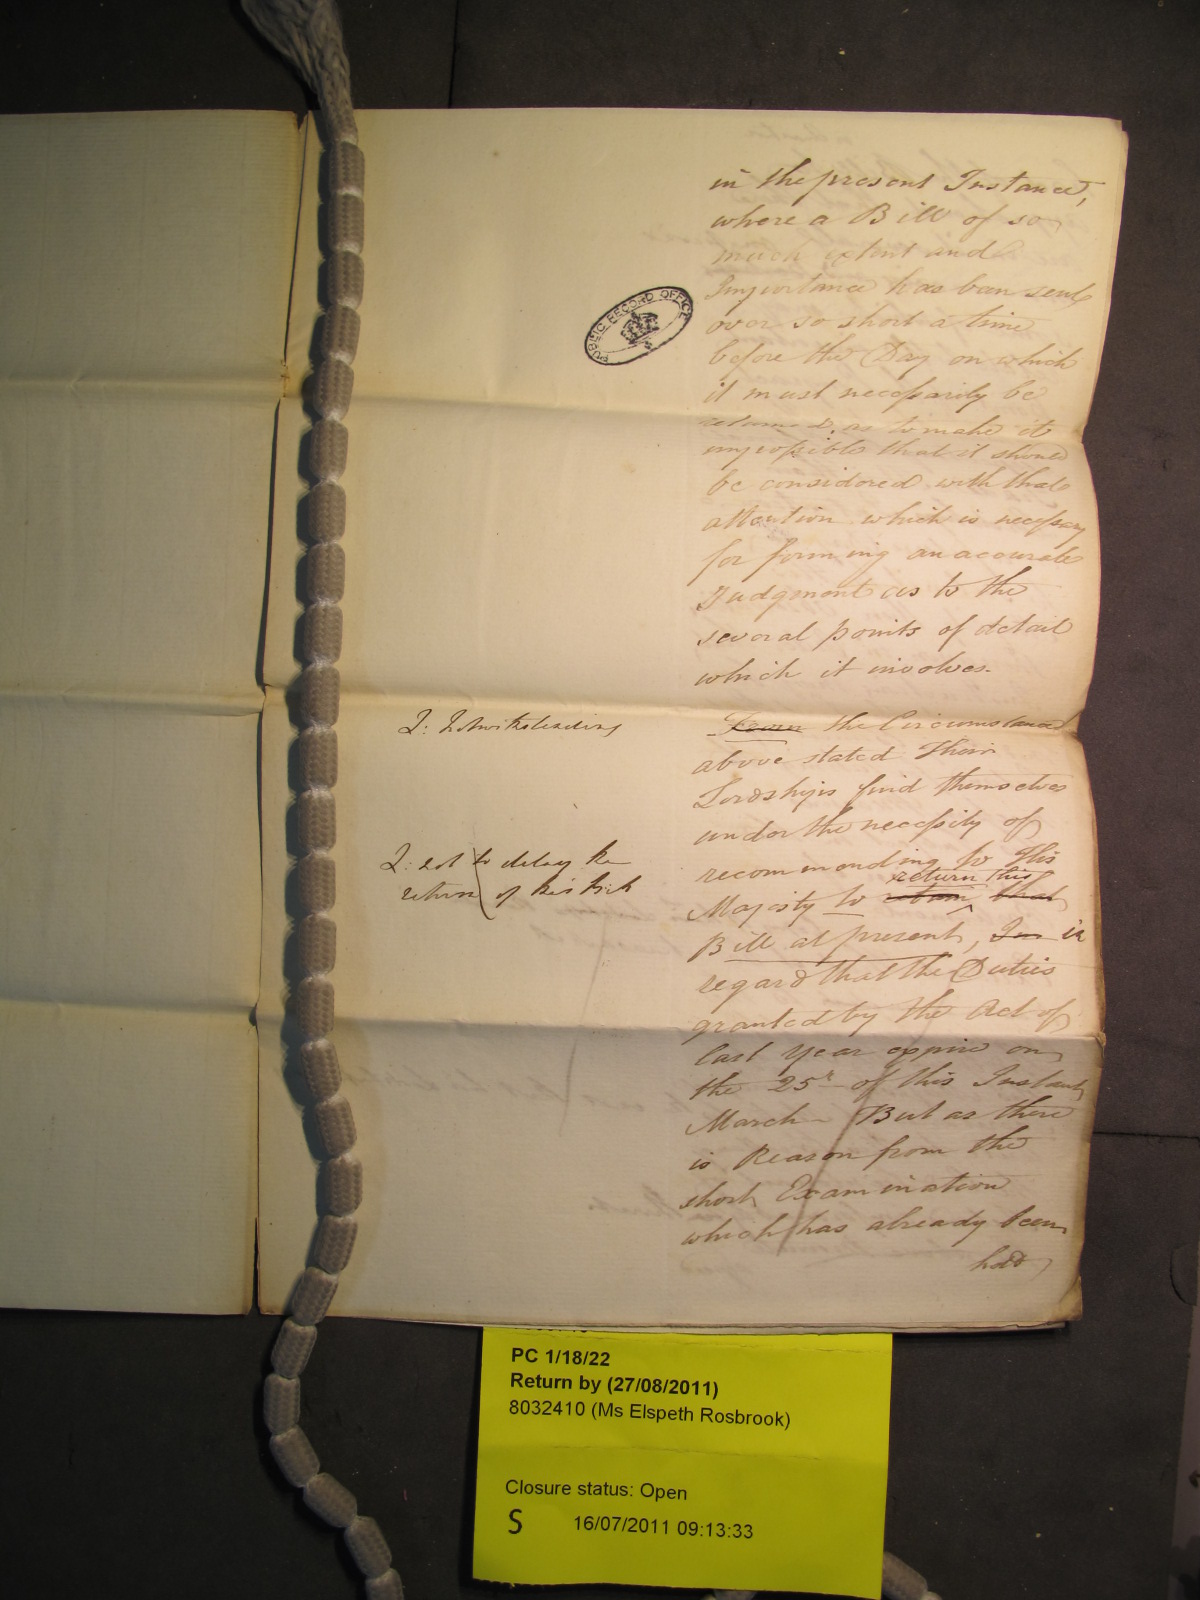 in the present Instance,
where a Bill of so
much extent and
Importance has been sent
over so short a time
before the Day on which
it must necessarily be
returned as to make it
impossible that it should
be considered with that
attention which is necessary
for forming an accurate
Judgment as to the
several points of detail
which it involves.
PUBLIC RECORD OFFICE
Q: Notwithstanding
From the Circumstances
above stated Their
Lordships find themselves
under the necessity of
recommending to His
return this
Majesty to retain that
Bill at present, In in
Q: not to delay the
return of this Bill
regard that the Duties
granted by the Act of
last Year expire on
the 25th of this Instant
March – But as there
is Reason from the
short Examination
which has already been
had
PC 1/18/22
Return by (27/08/2011)
8032410 (Ms Elspeth Rosbrook)
Closure status: Open
S 16/07/2011 09:13:33